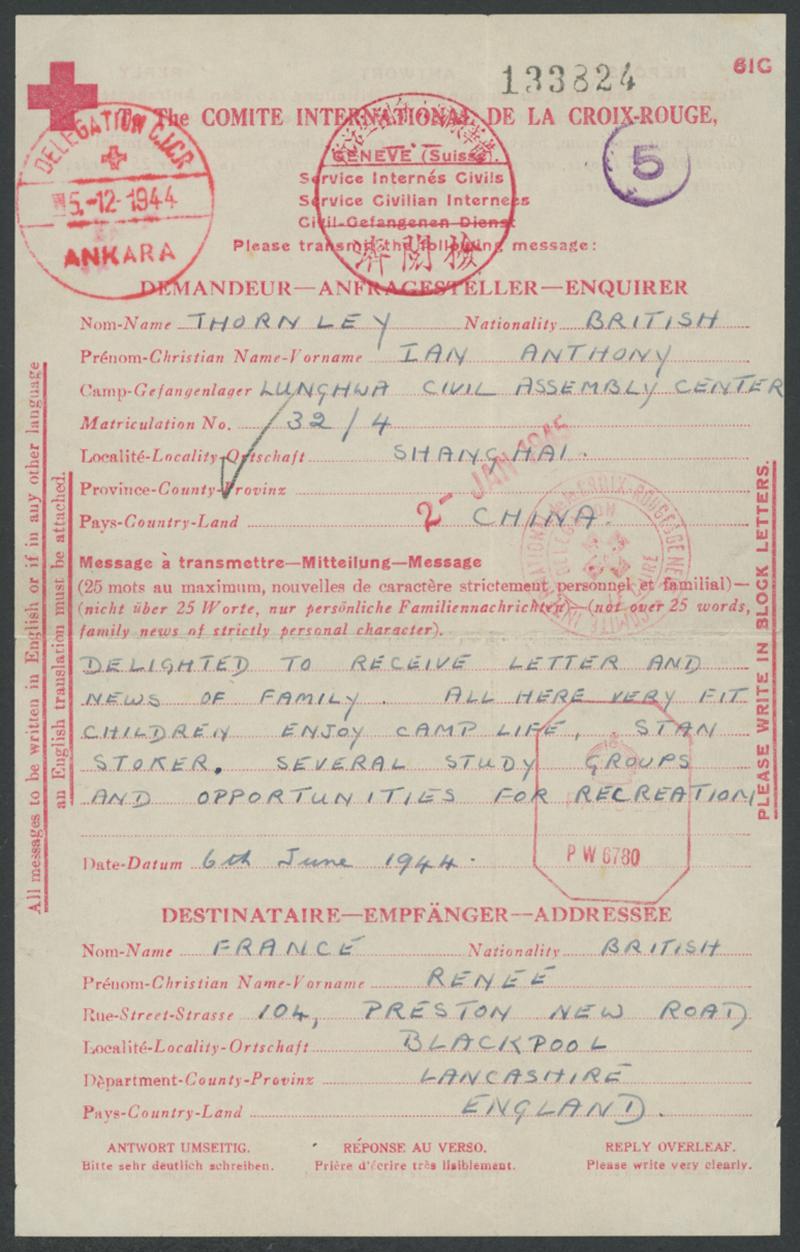 133824
61G
To The COMITE INTERNATIONAL DE LA CROIX-ROUGE,
DELEGATION C.I.C.R
5.-12-1944
ANKARA
GENEVE (Suisse).
5
Service Internés Civils
Service Civilian Internees
Civil-Gefangenen Dienst
檢閱濟
Please transmit the following message:
DEMANDEUR—ANFRAGESTELLER—ENQUIRER
Nom-Name THORNLEY Nationality BRITISH
Prénom-Christian Name-Vorname IAN ANTHONY
Camp-Gefangenlager LUNGHWA CIVIL ASSEMBLY CENTER
Matriculation No. 32/4
Localité-Locality-Ortschaft SHANGHAI.
2- JAN 1945
Province-County-Provinz
Pays-Country-Land CHINA.
Message à transmettre—Mitteilung—Message
(25 mots au maximum, nouvelles de caractère strictement personnel et familial)—
(nicht über 25 Worte, nur persönliche Familiennachrichten)—(not over 25 words,
family news of strictly personal character).
DELIGHTED TO RECEIVE LETTER AND
NEWS OF FAMILY. ALL HERE VERY FIT
CHILDREN ENJOY CAMP LIFE, STAN
STOKER. SEVERAL STUDY GROUPS
AND OPPORTUNITIES FOR RECREATION
P W 6780
Date-Datum 6th June 1944.
DESTINATAIRE—EMPFÄNGER—ADDRESSEE
Nom-Name FRANCE Nationality BRITISH
Prénom-Christian Name-Vorname RENEE
Rue-Street-Strasse 104, PRESTON NEW ROAD
Localité-Locality-Ortschaft BLACKPOOL
Dèpartment-County-Provinz LANCASHIRE
Pays-Country-Land ENGLAND.
ANTWORT UMSEITIG. RÉPONSE AU VERSO. REPLY OVERLEAF.
Bitte sehr deutlich schreiben. Prière d'écrire très lisiblement. Please write very clearly.
All messages to be written in English or if in any other language
an English translation must be attached.
PLEASE WRITE IN BLOCK LETTERS.